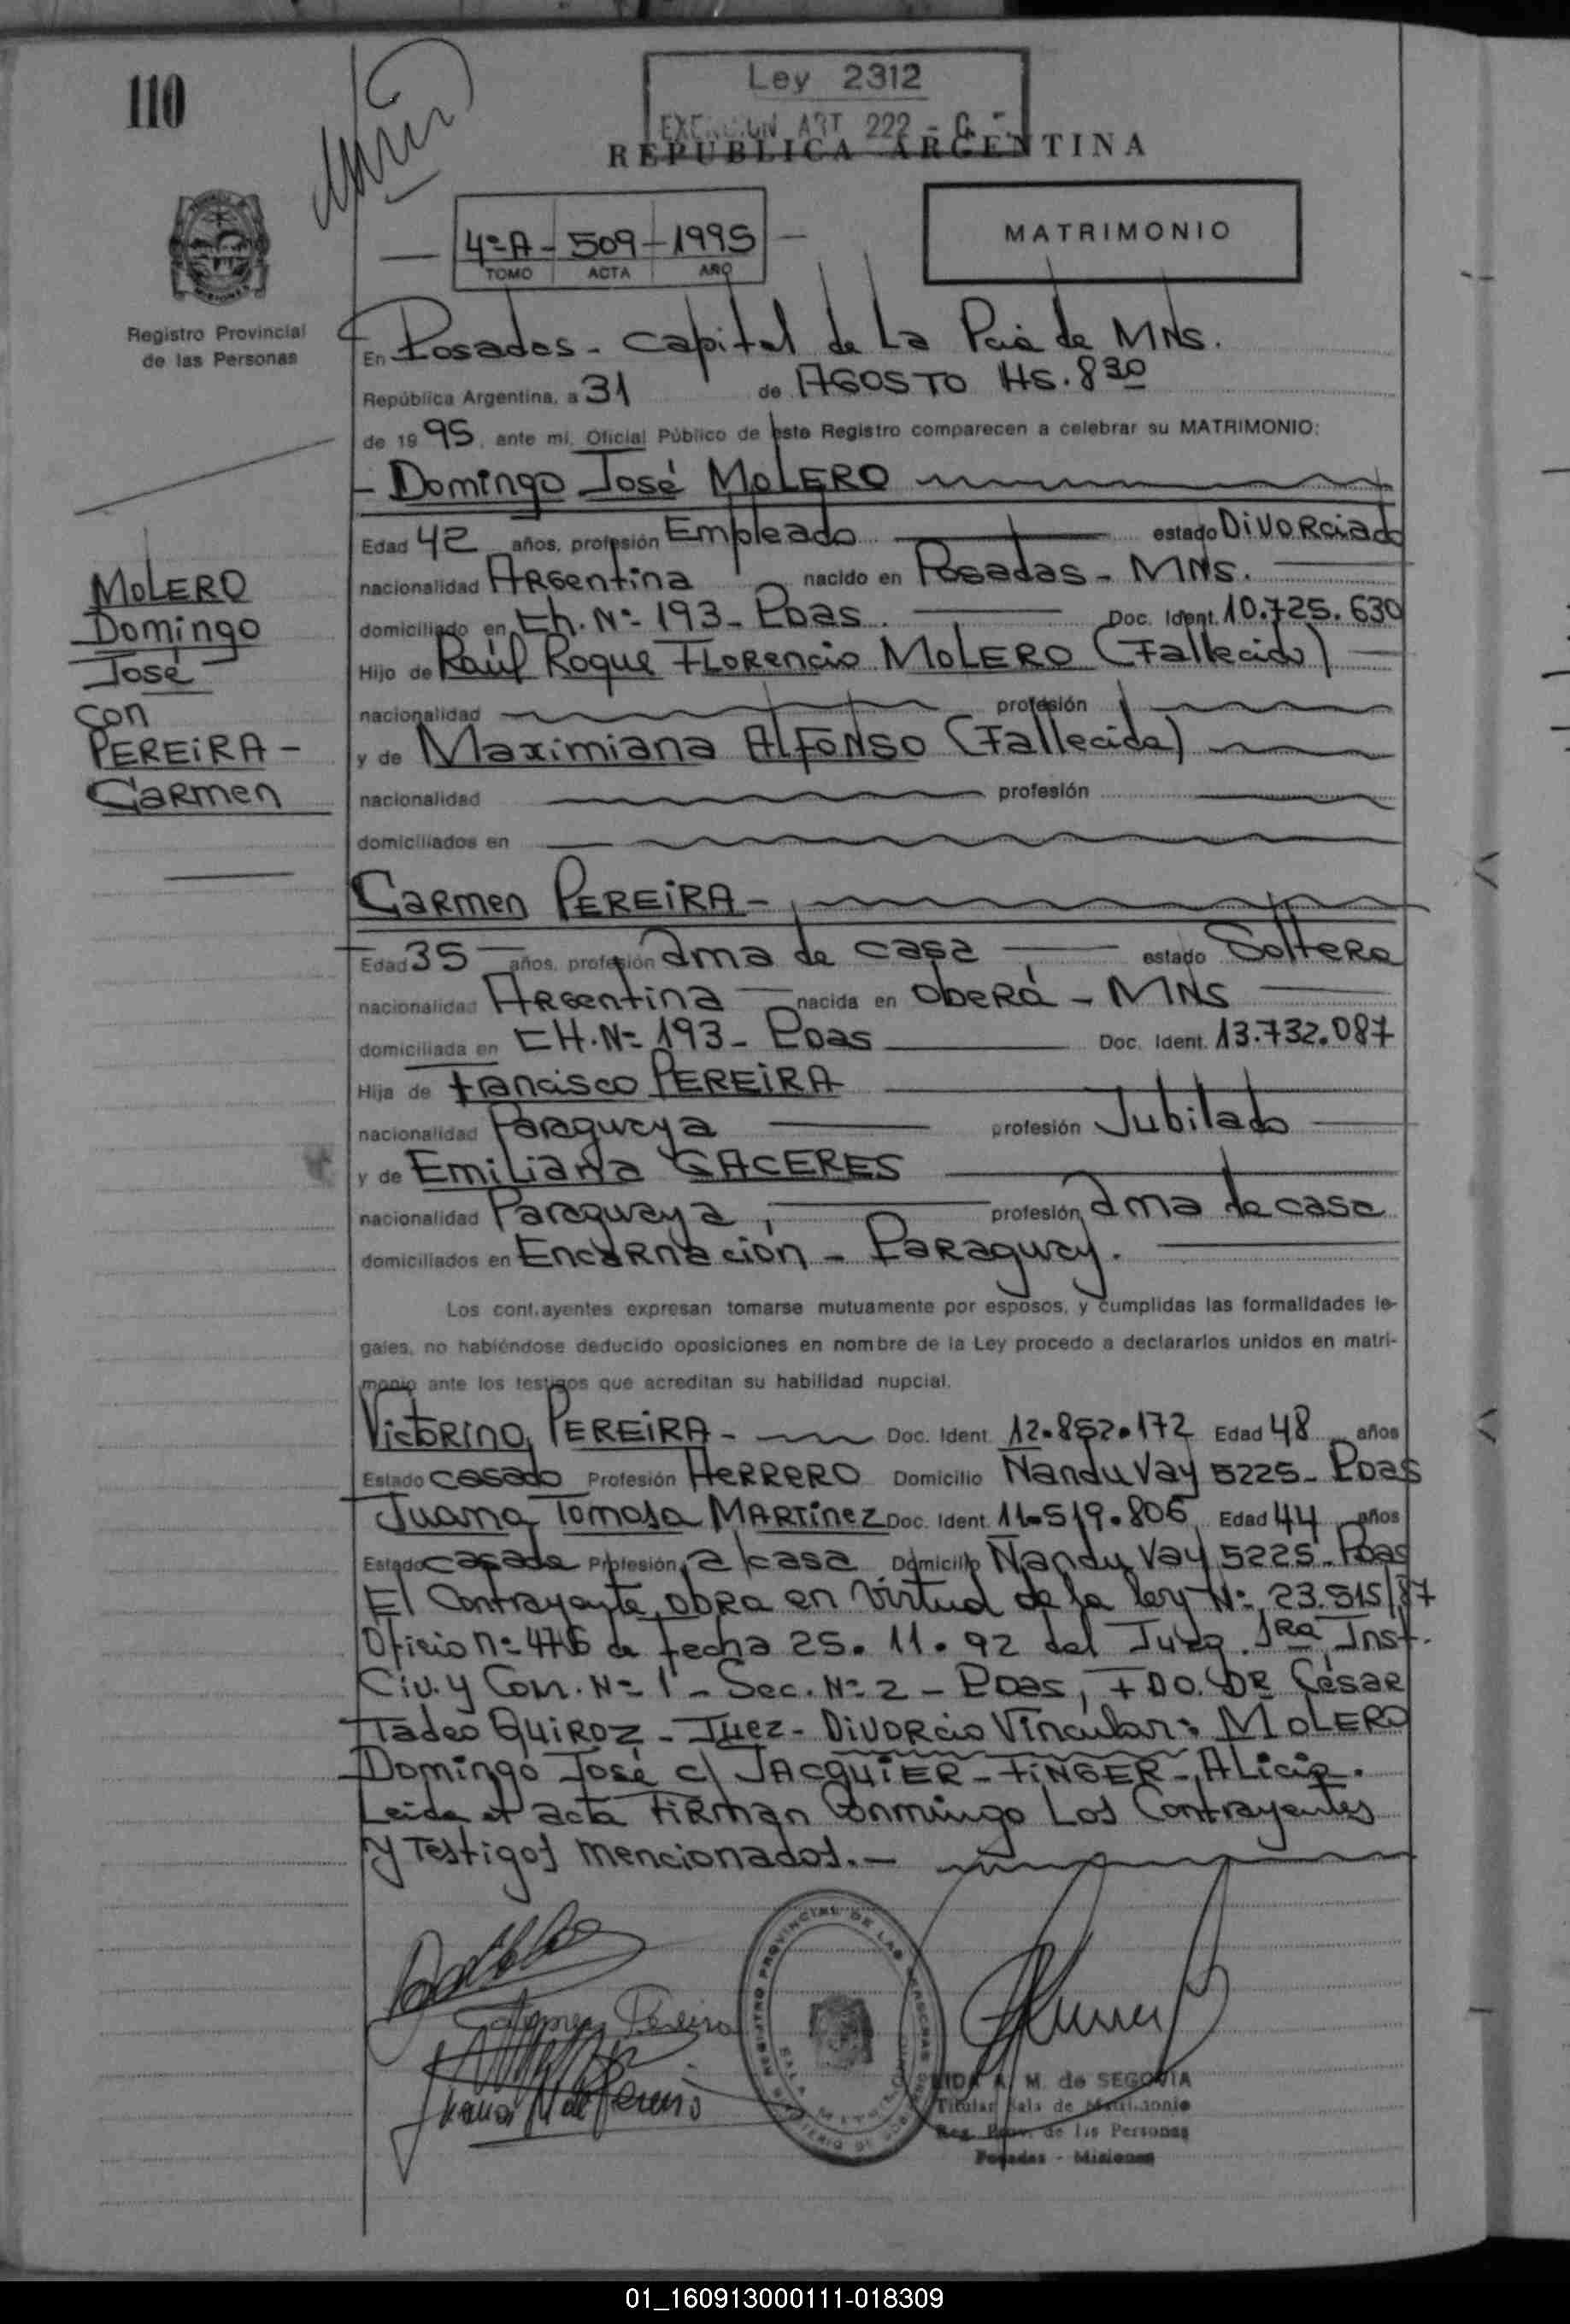 110
Ley 2312
ART 222 - C.
REPUBLICA ARGENTINA
4º A - 509 - 1995
TOMO ACTA AÑO
MATRIMONIO
Registro Provincial
de las Personas
En Posadas - Capital de La Pcia de MNS.
República Argentina, a 31 de AGOSTO HS. 8 30
de 1995, ante mi, Oficial Público de este Registro comparecen a celebrar su MATRIMONIO:
- Domingo José MOLERO
Edad 42 años, profesión Empleado estado Divorciado
nacionalidad Argentina nacido en Posadas - MNS.
domiciliado en Ch. Nº 193 - Pdas. Doc. Ident. 10.725.630
Hijo de Raúl Roque Florencio MOLERO (Fallecido)
nacionalidad profesión
y de Maximiana ALFONSO (Fallecida)
nacionalidad profesión
domiciliados en
MOLERO
Domingo
José
con
PEREIRA -
Carmen
Carmen PEREIRA -
Edad 35 años, profesión ama de casa estado Soltera
nacionalidad Argentina nacida en Oberá - MNS
domiciliada en CH. Nº 193 - Pdas Doc. Ident. 13.732.087
Hija de Francisco PEREIRA
nacionalidad Paraguaya profesión Jubilado
y de Emiliana CACERES
nacionalidad Paraguaya, profesión ama de casa
domiciliados en Encarnación - Paraguay.
Los contrayentes expresan tomarse mutuamente por esposos, y cumplidas las formalidades le-
gales, no habiéndose deducido oposiciones en nombre de la Ley procedo a declararlos unidos en matri-
monio ante los testigos que acreditan su habilidad nupcial.
Victorino PEREIRA - Doc. Ident. 12.852.172 Edad 48 años
Estado casado Profesión Herrero Domicilio Ñandu Vay 5225 - Pdas
Juana Tomasa MARTINEZ Doc. Ident. 11.519.806 Edad 44 años
Estado casada Profesión a/casa Domicilio Ñandu Vay 5225 - Pdas
El Contrayente obra en virtud de la ley Nº 23.515/87
Oficio nº de fecha 25.11.92 del Juzg. 1ra Inst.
Civ. y Com. Nº 1 - Sec. Nº 2 - Pdas, FDO. DR César
Tadeo QUIROZ - Juez - Divorcio Vincular: MOLERO
Domingo José c/ JACQUIER - FINGER - Alicia.
Leida el acta firman conmingo Los Contrayentes
y Testigos mencionados. -
Carmen Pereira
REGISTRO PROVINCIAL DE LAS PERSONAS
LIDA A. M. de SEGOVIA
Titular Sala de Matrimonio
Reg. Prov. de las Personas
Posadas - Misiones
01_160913000111-018309